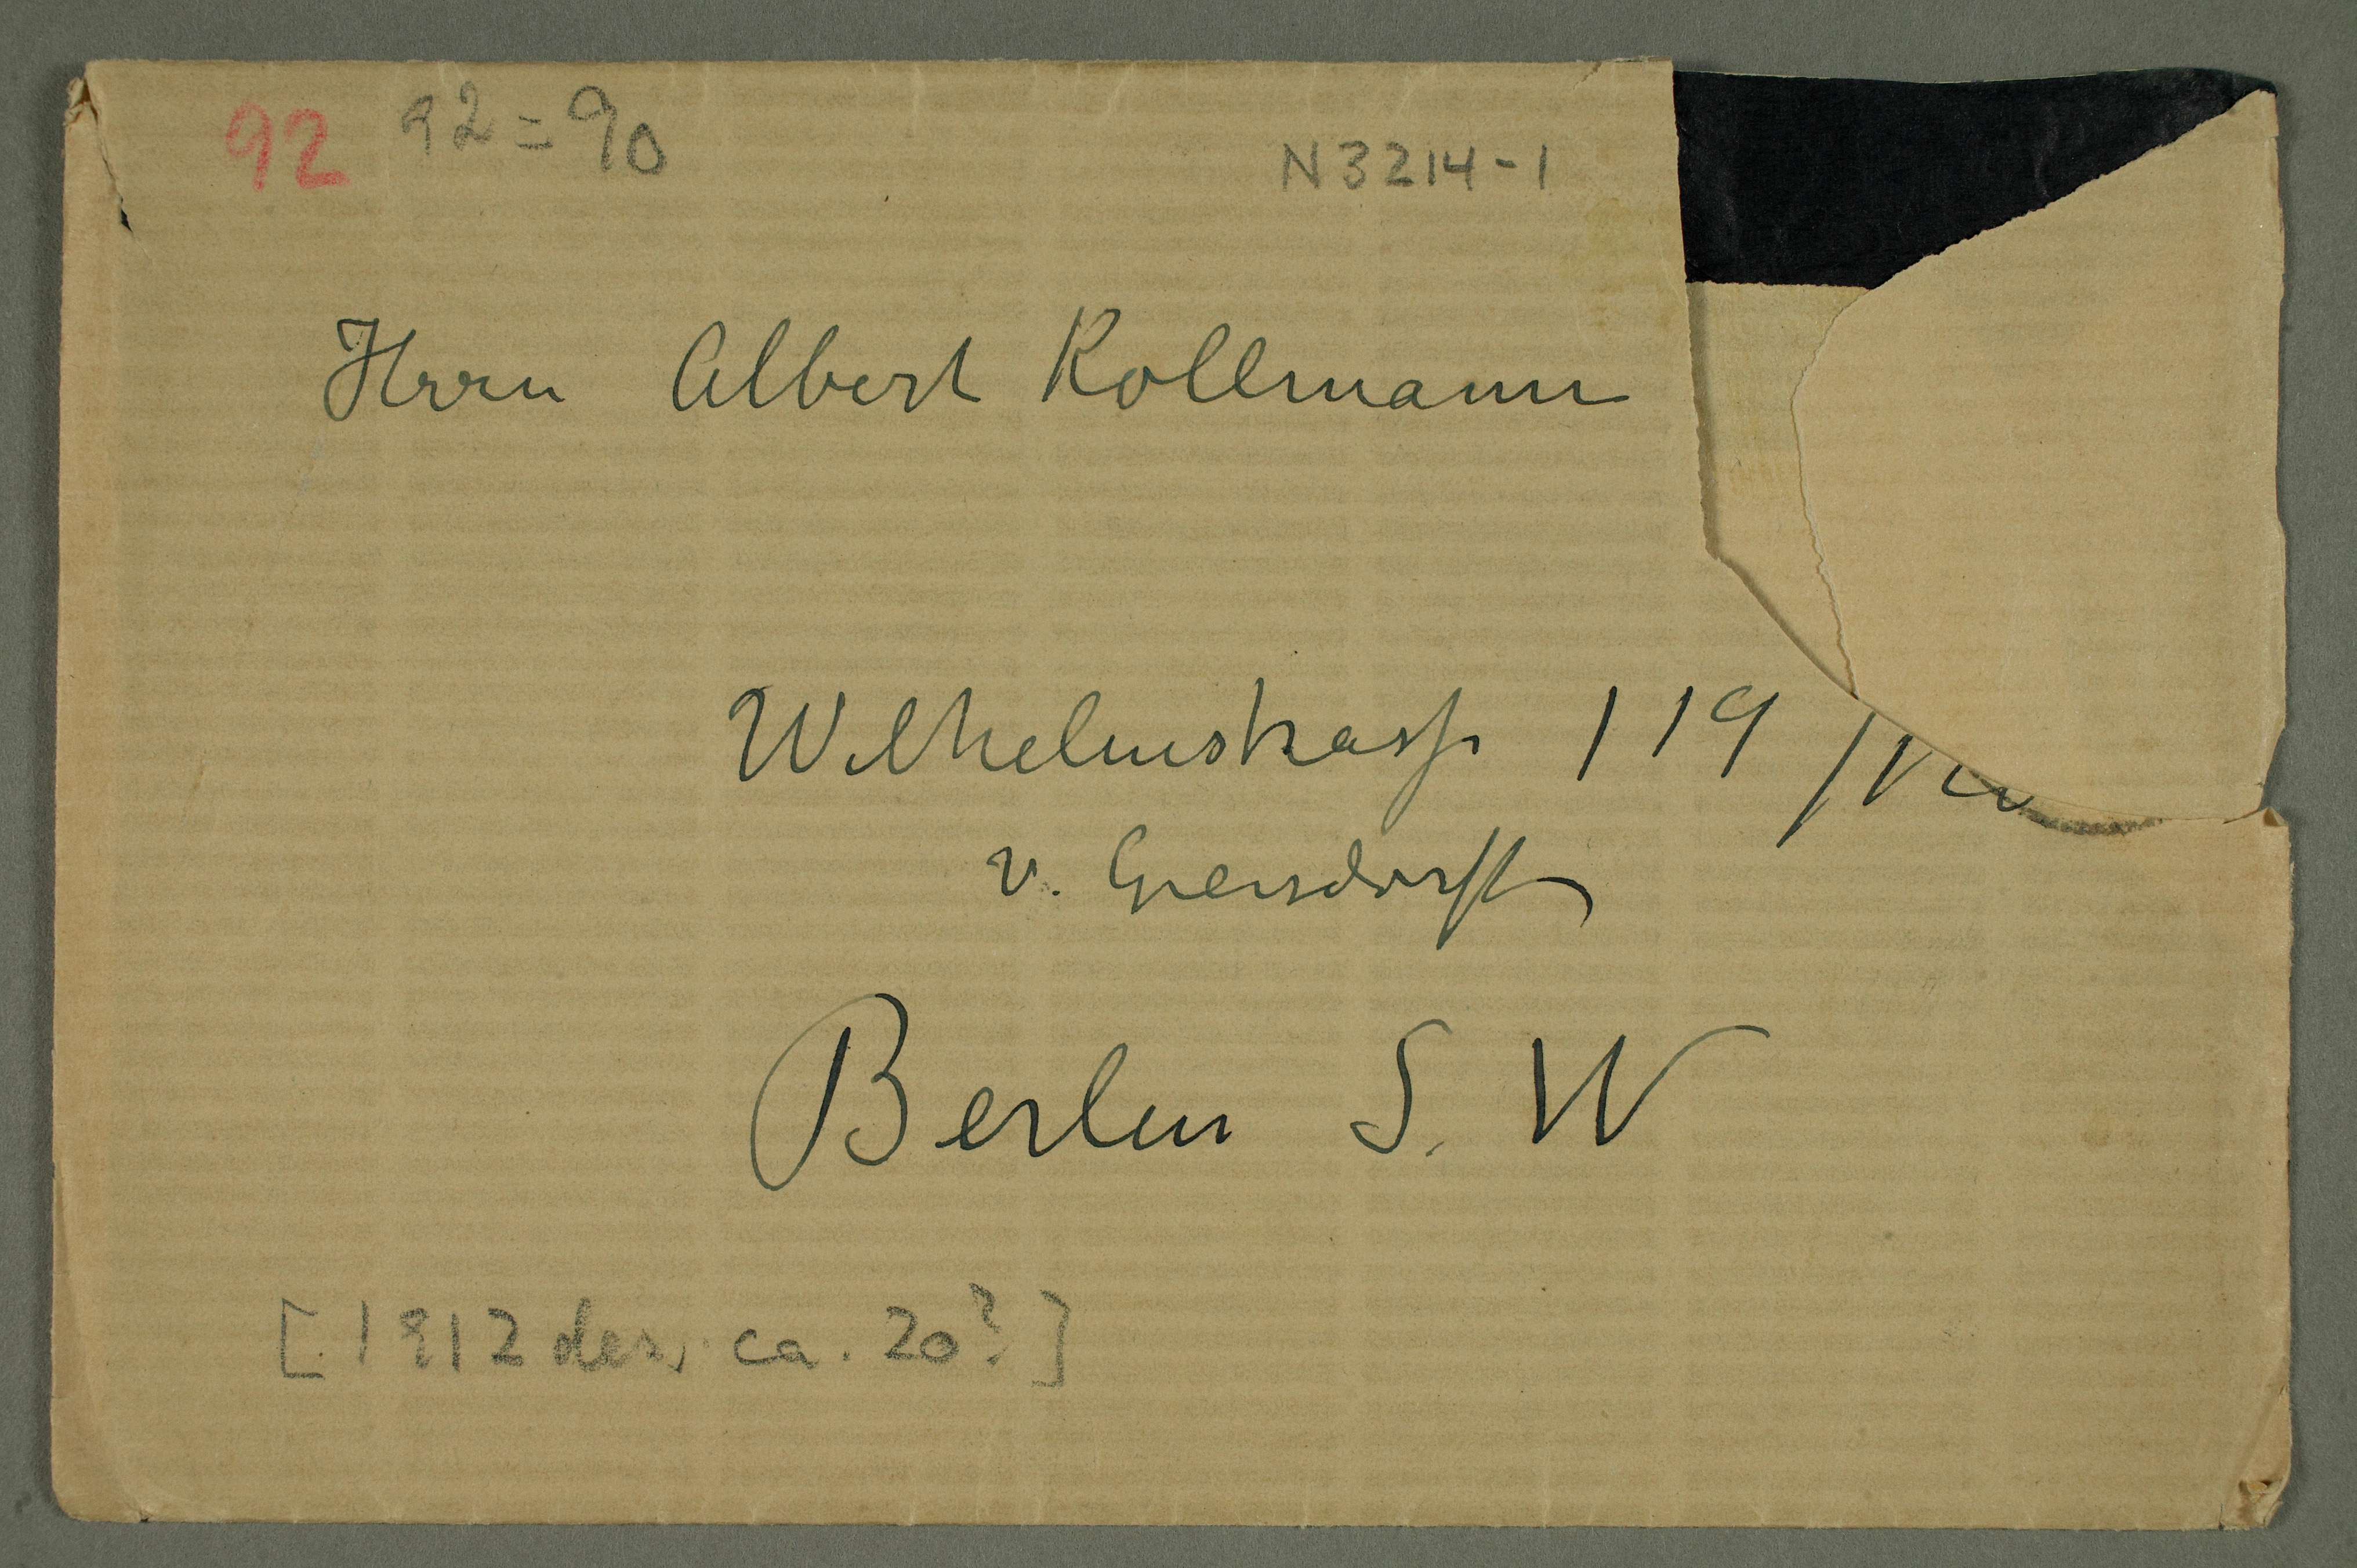 92 92=90 N3214-1
Herrn Albert Kollmann
Wilhelmstrasse 119
v. Gersdorff
Berlin S. W
[1912 des, ca. 20?]